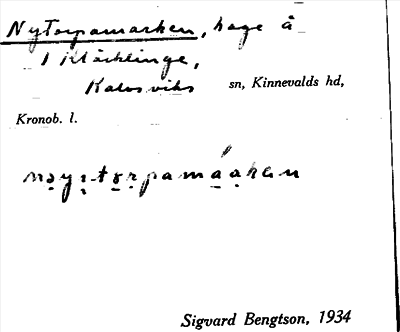 Nytorpamarken, hage å
1 Kläcklinge,
Kalvsviks sn, Kinnevalds hd,
Kronob. l.
Sigvard Bengtson, 1934